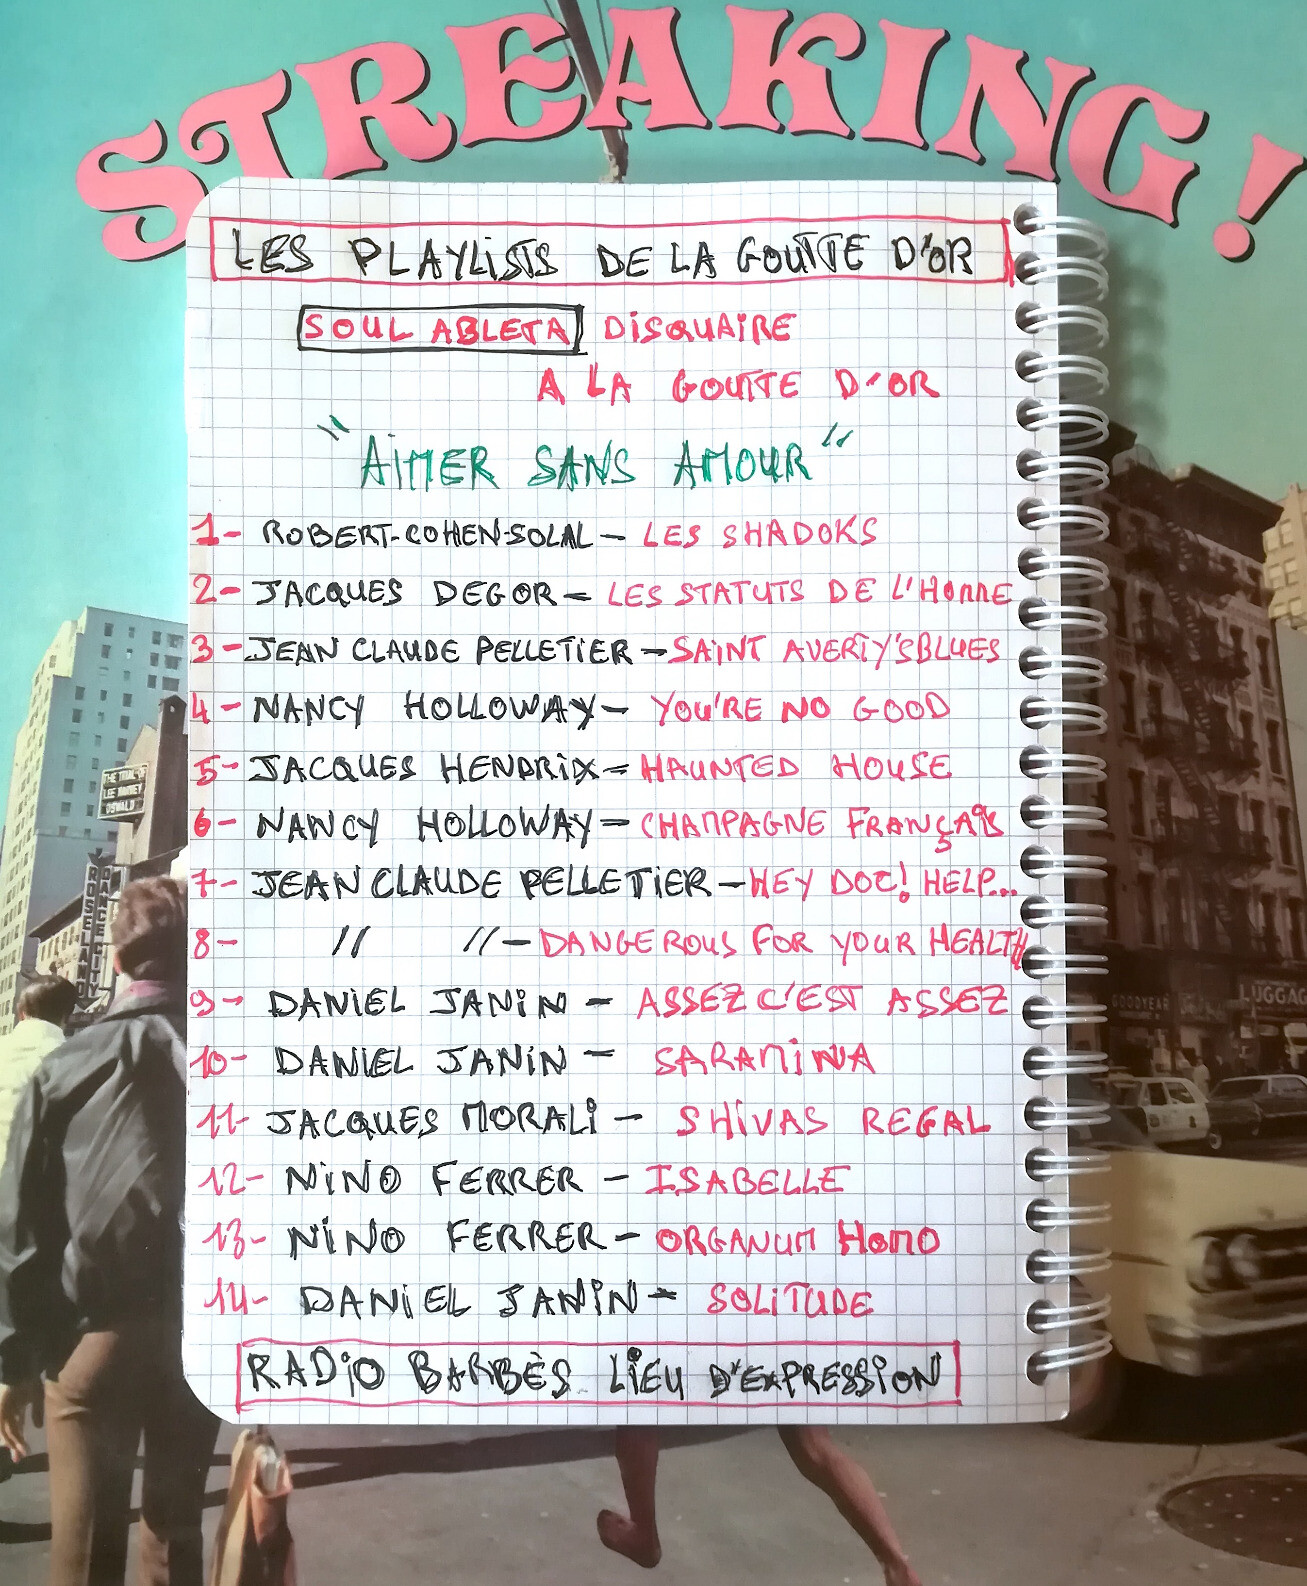 STREAKING!
LES PLAYLISTS DE LA GOUTTE D'OR
SOUL ABLETA DISQUAIRE
A LA GOUTTE D'OR
"AIMER SANS AMOUR"
1- ROBERT-COHEN-SOLAL - LES SHADOKS
2- JACQUES DEGOR - LES STATUTS DE L'HOMME
3- JEAN CLAUDE PELLETIER - SAINT AVERTY'S BLUES
4- NANCY HOLLOWAY - YOU'RE NO GOOD
5- JACQUES HENDRIX - HAUNTED HOUSE
6- NANCY HOLLOWAY - CHAMPAGNE FRANÇAIS
7- JEAN CLAUDE PELLETIER - HEY DOC! HELP...
8- // // - DANGEROUS FOR YOUR HEALTH
9- DANIEL JANIN - ASSEZ C'EST ASSEZ
10- DANIEL JANIN - SARAMINA
11- JACQUES MORALI - SHIVAS REGAL
12- NINO FERRER - ISABELLE
13- NINO FERRER - ORGANUM HOMO
14- DANIEL JANIN - SOLITUDE
RADIO BARBÈS LIEU D'EXPRESSION
THE TRIAL OF
LEE HARVEY
OSWALD
ROSELAND
DANCE CITY
GOODYEAR
LUGGAG